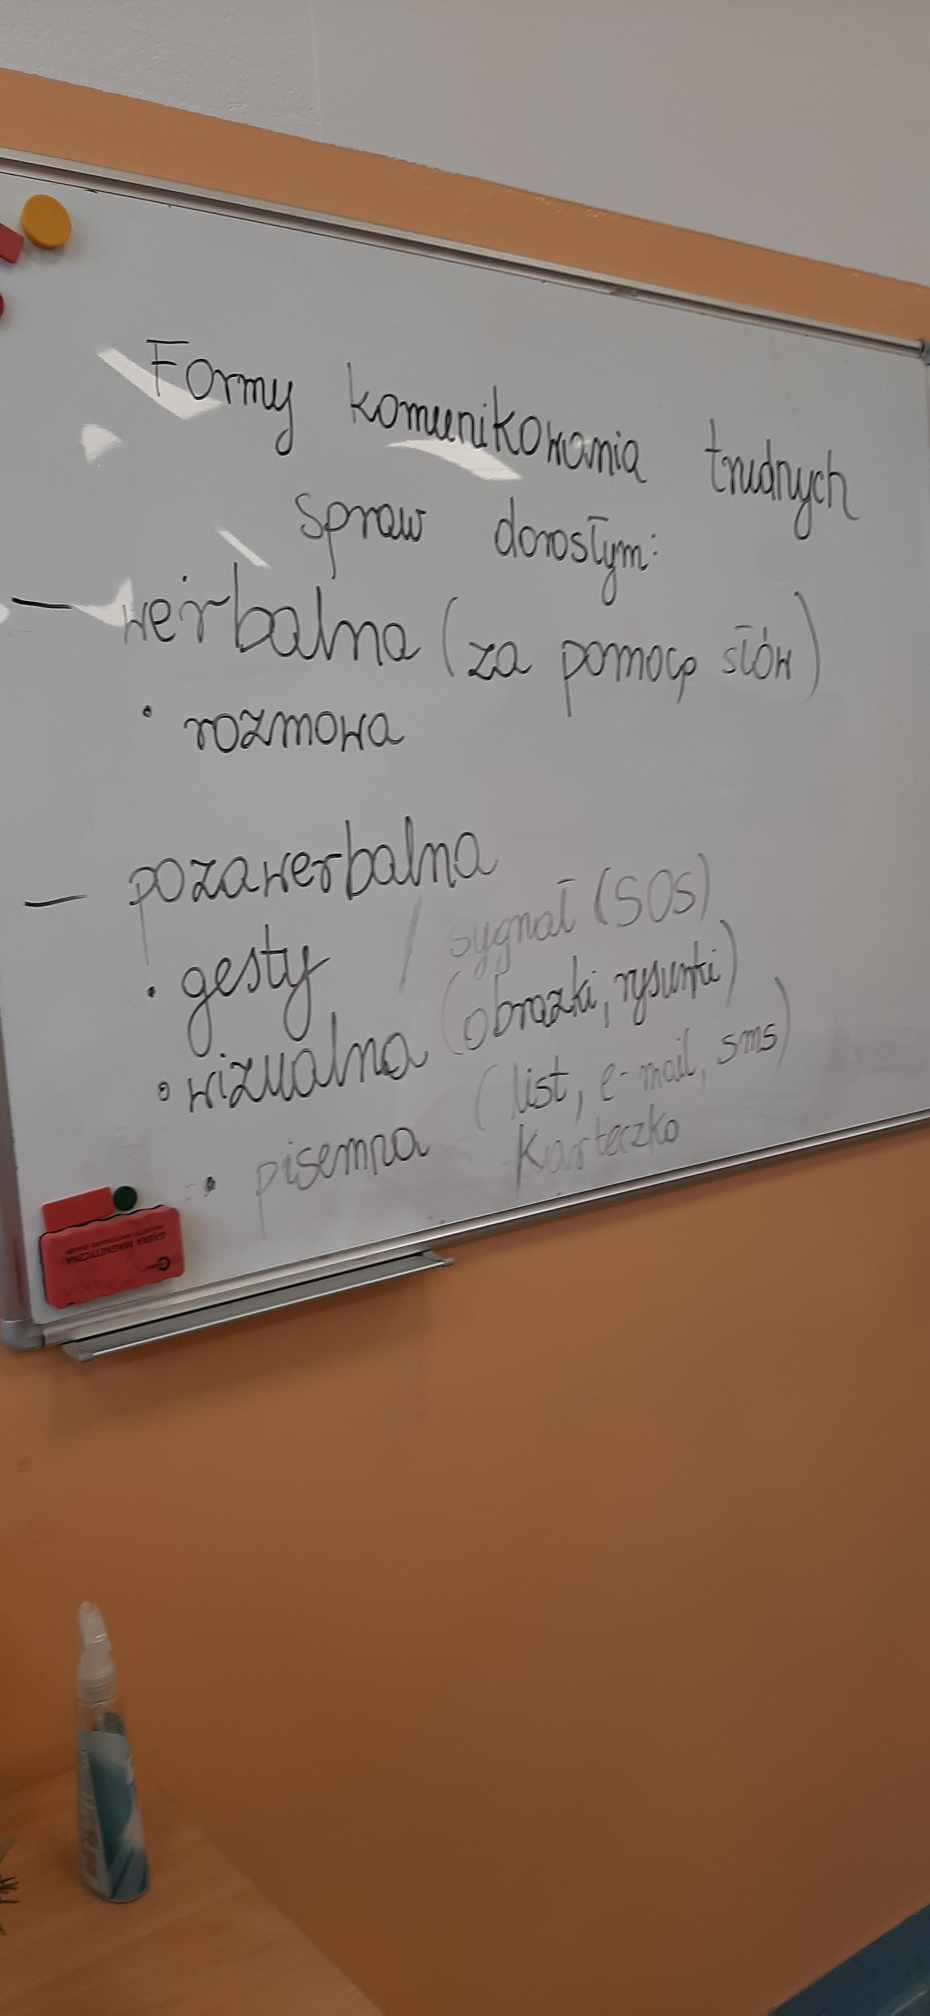 Formy komunikowania trudnych
spraw dorosłym:
– werbalna (za pomocą słów)
• rozmowa
– pozawerbalna
• gesty / sygnał (SOS)
• wizualna (obrazki, rysunki)
• pisemna (list, e-mail, sms)
karteczka
GĄBKA MAGNETYCZNA